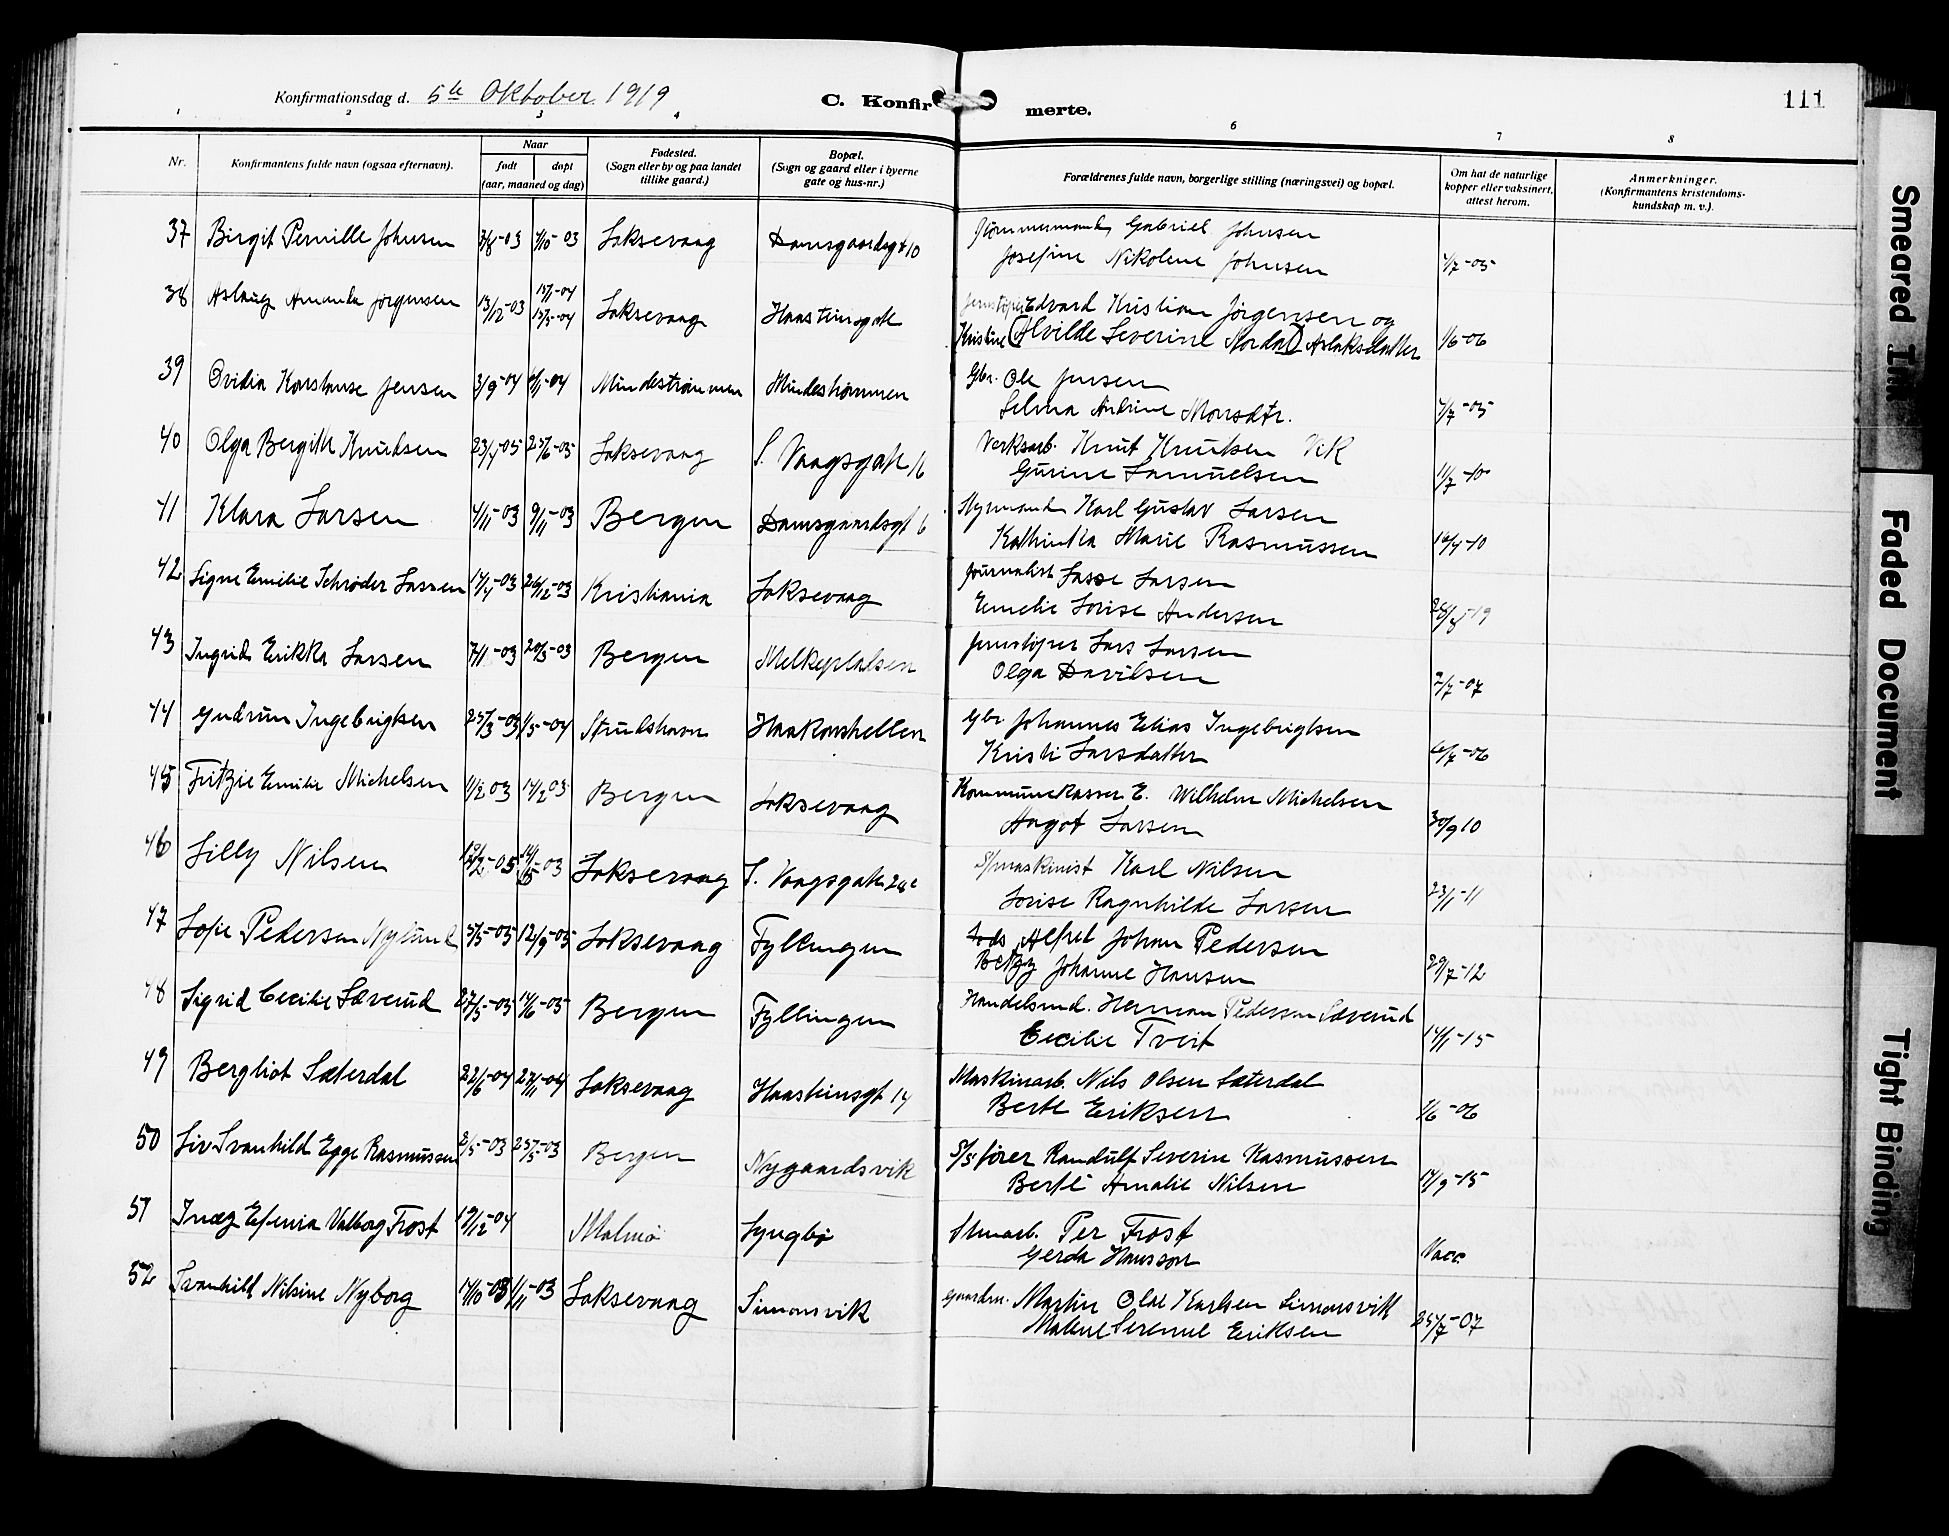 Konfirmationsdag d. 5te Oktober 1919
C. Konfirmerte.
111
1 2 3 4 6 7 8
Nr.
Konfirmantens fulde navn (ogsaa efternavn).
Naar
født døpt
(aar, maaned og dag)
Fødested.
(Sogn eller by og paa landet
tillike gaard.)
Bopæl.
(Sogn og gaard eller i byerne
gate og hus-nr.)
Forældrenes fulde navn, borgerlige stilling (næringsvei) og bopæl.
Om hat de naturlige
kopper eller vaksinert,
attest herom.
Anmerkninger.
(Konfirmantens kristendoms-
kundskap m. v.).
37 Birgit Pernille Johnsen Laksevaag Damsgaardsgt 10 Gabriel Johnsen
Josefine Nikolene Johnsen
38 Aslaug Amanda Jørgensen 13/12-03 Laksevaag Haasteinsgate Jernstøper Edvard Kristian Jørgensen og
Kristine (Alvilde Severine Nordal) Aslaksdatter 1/6-06
39 Ovidia Konstanse Jensen 3/9-04 Mindestrømmen Mindestrømmen Gbr. Ole Jensen
Selma Andrine Monsdtr.
40 Olga Bergitte Knudsen Laksevaag S. Vaagsgate 16 Verksarb. Knut Knutsen Vik
Gurine Samuelsen 11/7-10
41 Klara Larsen 4/11-03 9/11-03 Bergen Damsgaardsgt 6 Styrmand Karl Gustav Larsen
Kathinka Marie Rasmussen
42 Signe Emilie Schrøder Lassen 26/12-03 Kristiania Laksevaag Journalist Lasse Larsen
Emelie Lovise Andersen
43 Ingrid Erikka Larsen 7/1-03 20/3-03 Bergen Melkeplatsen Jernstøper Lars Larsen
Olga Davidsen 2/7-07
44 Gudrun Ingebrigtsen 25/3-03 1/5-04 Strudshavn Haakonshellen Gbr Johannes Elias Ingebrigtsen
Kristi Larsdatter
45 Fritzie Emilie Michelsen 11/2 03 Bergen Laksevaag Kommunekasser E. Wilhelm Michelsen
Aagot Larsen 30/9 10
46 Lilly Nilsen Laksevaag S. Vaagsgate S/maskinist Karl Nilsen
Lovise Ragnhilde Larsen 23/1-11
47 Sofie Pedersen Nylund 12/9-05 Laksevaag Fyllingen Alfret Johan Pedersen
Betzy Johanne Hansen 29/7-12
48 Sigrid Cecilie Sæverud 27/5-03 Bergen Fyllingen Handelsmd. Herman Pedersen Sæverud
Cecilie Tveit 14/1-15
49 Bergliot Sæterdal 22/6-04 27/11-04 Laksevaag Haasteinsgt 14 Maskinarb. Nils Olsen Sæterdal
Berte Eriksen 1/6-06
50 Liv Svanhild Egge Rasmussen 2/5-03 Bergen Nygaardsvik S/S fører Randulf Severin Rasmussen
Berte Amalie Nilsen 17/9-15
51 Inez Efenia Valborg Frost 19/12-04 Malmö Lyngbø Per Frost
Gerda Hansson Vacc
52 Svanhild Nilsine Nyborg 1/11-03 Laksevaag Simonsvik Gaardm. Martin Olai Karlsen Simonsvik
Malene Serene Eriksen 25/7-07
Smeared Ink
Faded Document
Tight Binding